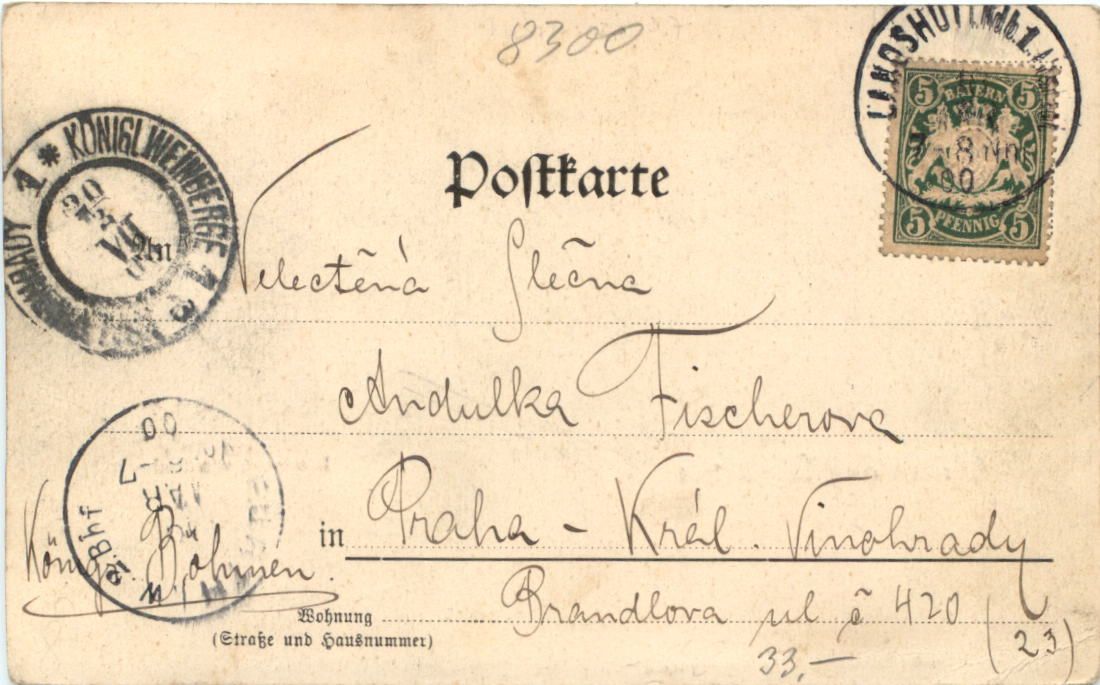 8300
LANDSHUT
5 BAYERN 5
8
00
5 PFENNIG 5
KÖNIGL. WEINBERGE 1
1 *
30
VII
Postkarte
An
Velectěná Slečna
Andulka Fischerova
00
7
B.Bhf
in Praha - Král. Vinohrady
König. Böhmen.
Brandlova ul č 420
(23)
Wohnung
(Straße und Hausnummer)
33,-